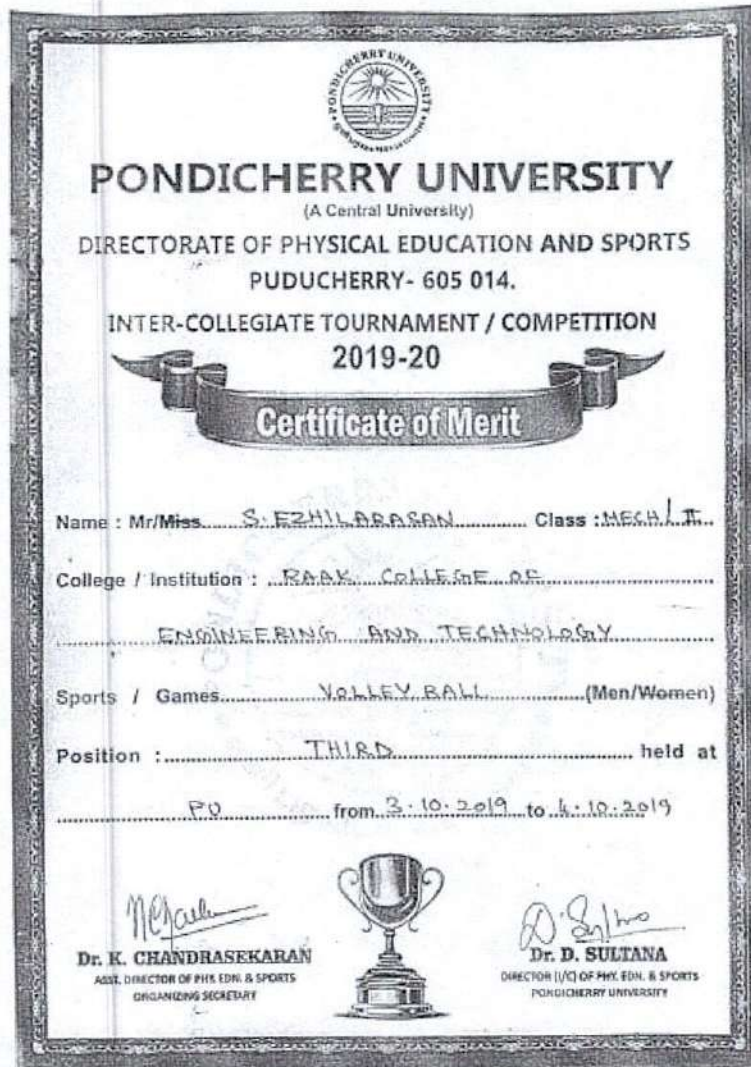 PONDICHERRY UNIVERSITY
PONDICHERRY UNIVERSITY
(A Central University)
DIRECTORATE OF PHYSICAL EDUCATION AND SPORTS
PUDUCHERRY- 605 014.
INTER-COLLEGIATE TOURNAMENT / COMPETITION
2019-20
Certificate of Merit
Name : Mr/Miss S. EZHILARASAN Class : MECH / II
College / Institution : RAAK COLLEGE OF
ENGINEERING AND TECHNOLOGY
Sports / Games VOLLEY BALL (Men/Women)
Position : THIRD held at
PU from 3.10.2019 to 4.10.2019
Dr. K. CHANDRASEKARAN
ASST. DIRECTOR OF PHY. EDN. & SPORTS
ORGANIZING SECRETARY
Dr. D. SULTANA
DIRECTOR (I/C) OF PHY. EDN. & SPORTS
PONDICHERRY UNIVERSITY